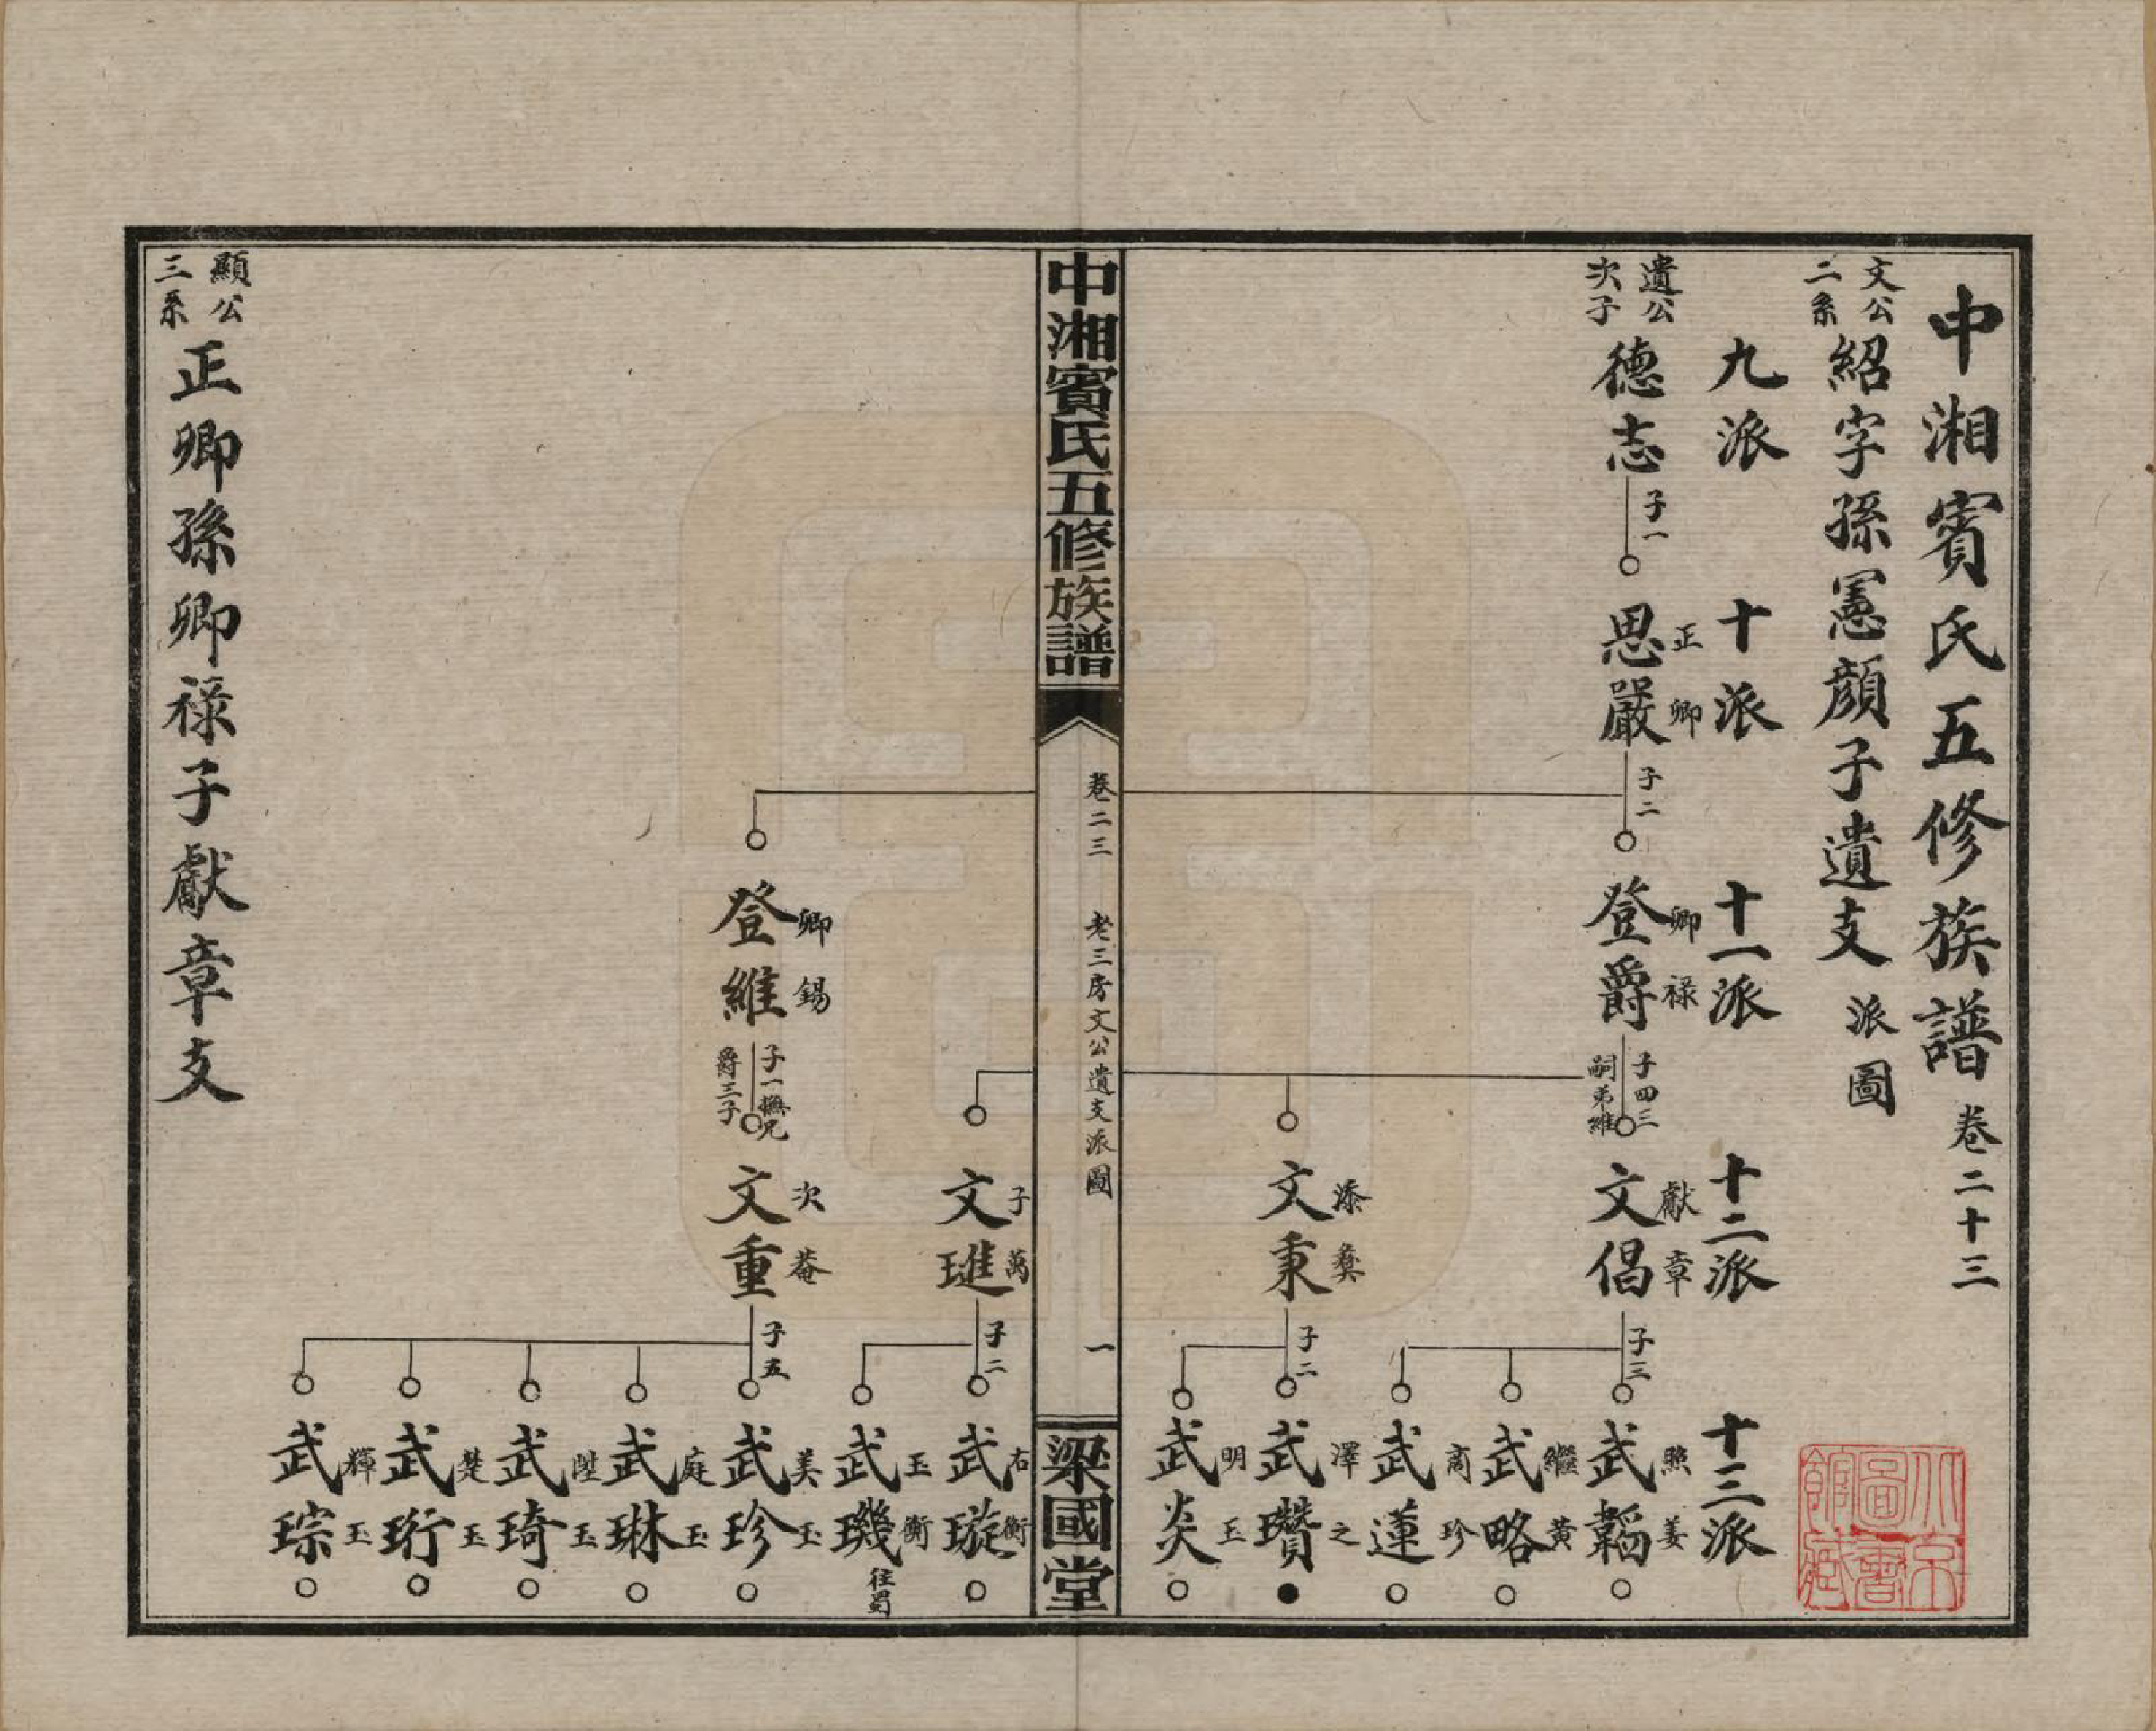 中湘賓氏五修族譜 卷二十三
文公二系 紹字孫憲顏子遺支派圖
九派 十派 十一派 十二派 十三派
遺公次子
德志 子一
思嚴 正卿 子二
登爵 卿祿 子四三嗣弟維
文倡 獻章 子三
武韜 照姜
武略 繼黃
武蓮 商珍
文秉 添彝 子二
武瓚 澤之
武炎 明玉
中湘賓氏五修族譜
卷二三 老三房文公遺支派圖 一
梁國堂
文璡 子萬 子二
武璇 右衡
武璣 玉衡 往蜀
登維 卿錫 子一撫兄爵三子
文重 次菴 子五
武珍 美玉
武琳 庭玉
武琦 陞玉
武珩 楚玉
武琮 輝玉
顯公三系 正卿孫卿祿子獻章支
北京圖書館藏